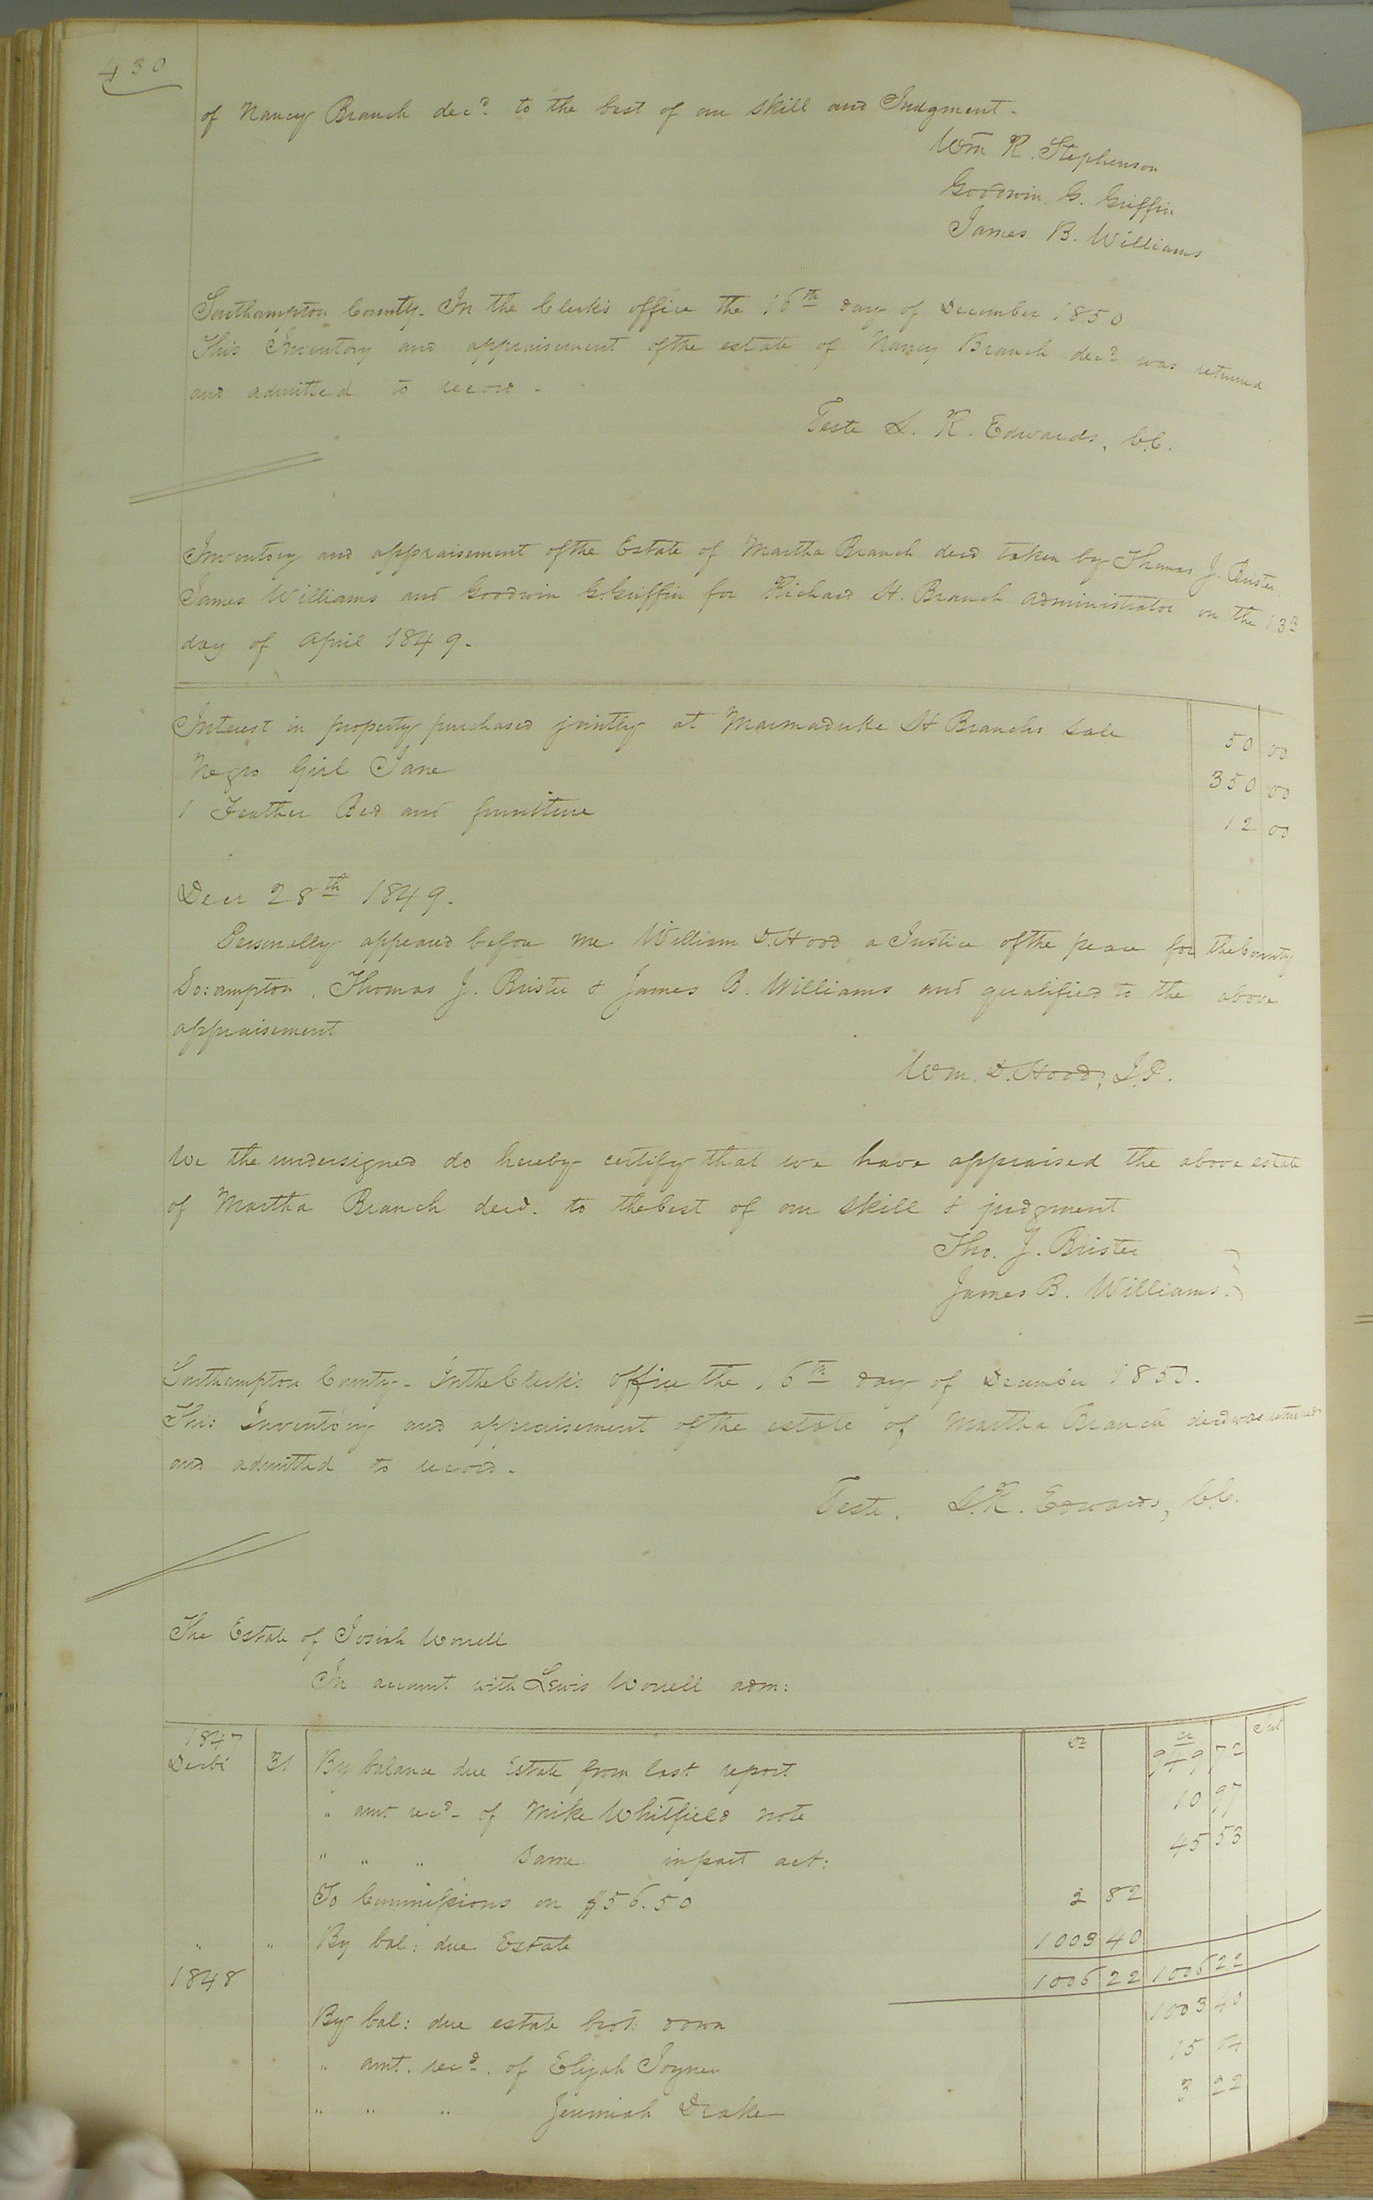 430
of Nancy Branch decd. to the best of our skill and Judgment.
Wm R. Stephenson
Goodwin G. Griffin
James B. Williams
Southampton County. In the Clerk's office the 16th day of December 1850
This Inventory and appraisement of the estate of Nancy Branch decd was returned
and admitted to record.
Teste L. R. Edwards, C.C.
Inventory and appraisement of the Estate of Martha Branch decd taken by Thomas J. Bristee,
James Williams and Goodwin G. Griffin for Richard H. Branch administrator on the 13th
day of April 1849.
Interest in property purchased jointly at Marmaduke H Branchs sale 50 00
Negro Girl Jane 350 00
1 Feather Bed and furniture 12 00
Decr 28th 1849.
Personally appeared before me William D. Hood a Justice of the peace for the County
So:ampton, Thomas J. Bristee & James B. Williams and qualified to the above
appraisement
Wm. D. Hood, J.P.
We the undersigned do hereby certify that we have appraised the above estate
of Martha Branch decd. to the best of our skill & judgment
Tho. J. Bristee
James B. Williams.
Southampton County. In the Clerk's office the 16th day of December 1850.
This Inventory and appraisement of the estate of Martha Branch decd was returned
and admitted to record.
Teste. L.R. Edwards, C.C.
The Estate of Josiah Worrell
In account with Lewis Worrell adm:
1847 Dr Cr Int
Decbr 31 By balance due Estate from last report 949 72
" amt recd. of Mike Whitfield note 10 97
" " " Same in part act: 45 53
To Commissions on $56.50 2 82
" " By bal: due Estate 1003 40
1848 1006 22 1006 22
By bal: due estate brot. down 1003 40
" amt. recd. of Elijah Joyner 15
" " " Jeremiah Drake 3 22